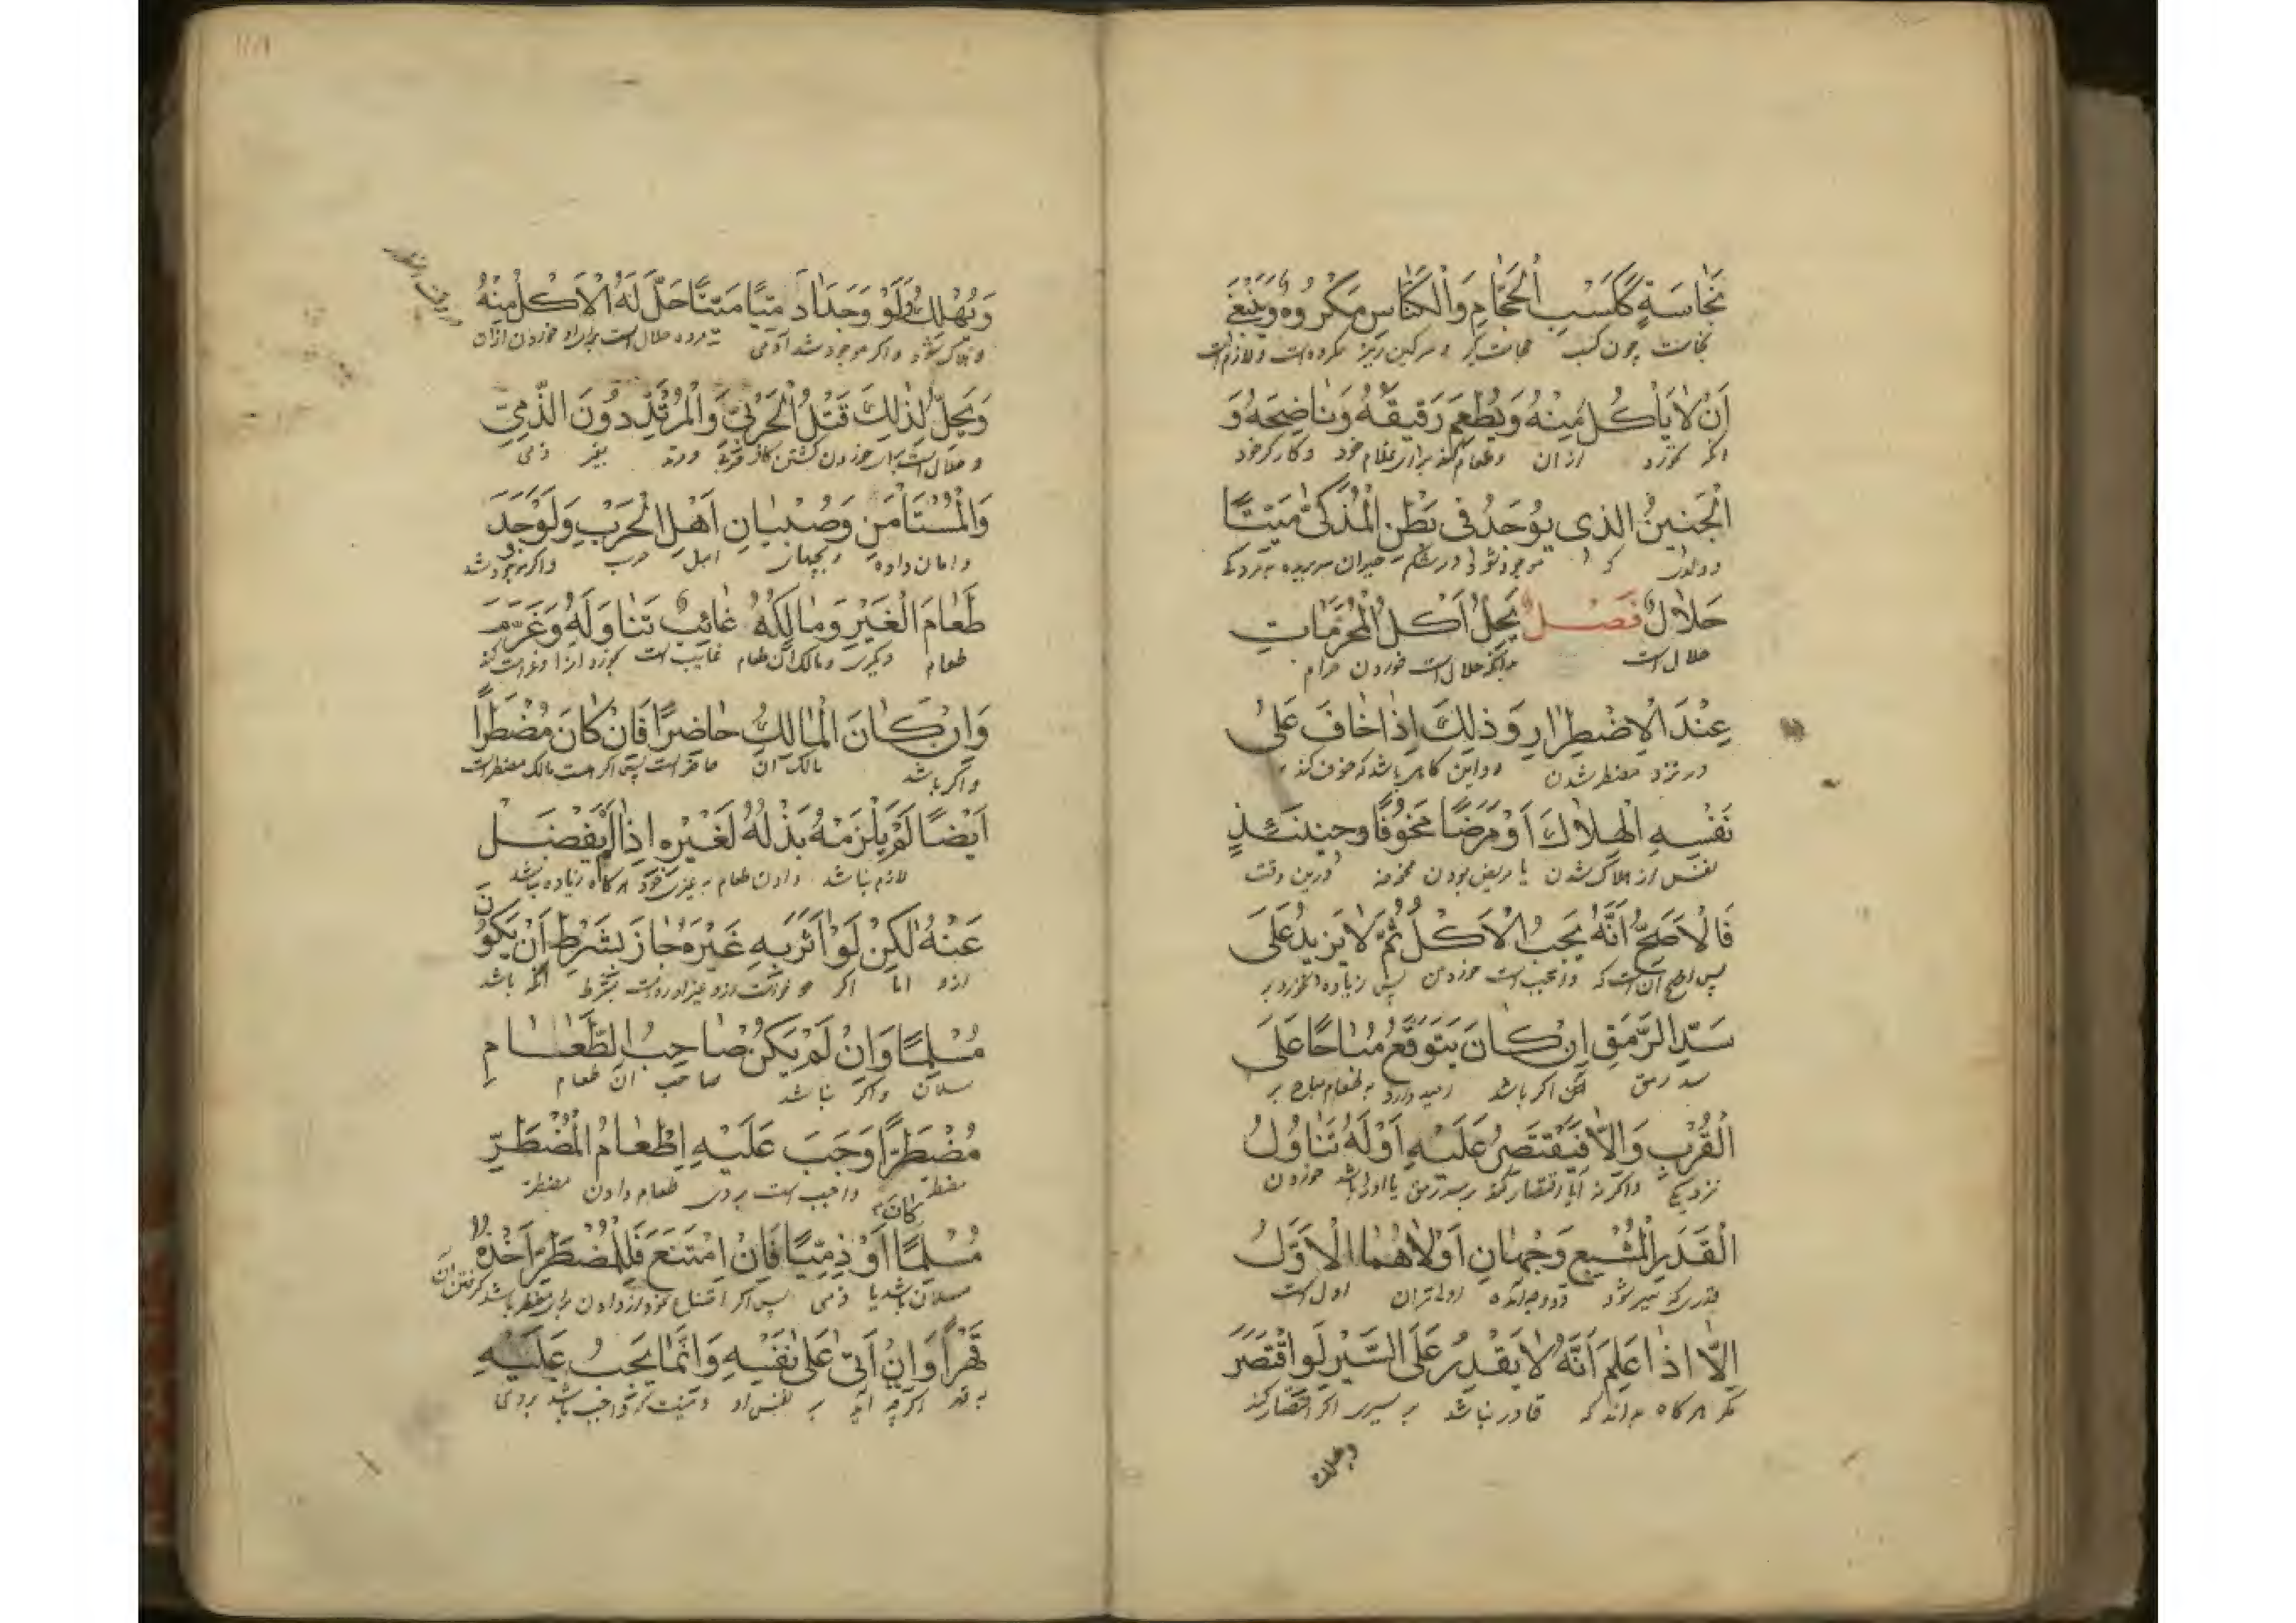 نَجَاسَةٍ كَكَسْبِ الْحَجَّامِ وَالْكَنَّاسِ مَكْرُوهٌ وَيَنْبَغِي
نجاست چون کسب حجامت‌گر و سرکین ریز مکروه است و لازم است
اَنْ لَا يَأْكُلَ مِنْهُ وَيُطْعِمَ رَقِيقَهُ وَنَاضِحَهُ وَ
انکه نخورد از ان وطعام کند برای غلام خود و کارکر خود
الْجَنِينُ الَّذِى يُوجَدُ فِى بَطْنِ الْمُذَكَّى مَيْتًا
موجود شود در شکم حیوان سر بریده
حَلَالٌ فَصْلٌ يَحِلُّ اَكْلُ الْمُحَرَّمَاتِ
حلال است حلال است خوردن حرام
عِنْدَ الْاِضْطِرَارِ وَذٰلِكَ اِذَا خَافَ عَلَى
در نزد مضطر شدن و این کاهی باشد که خوف کند
نَفْسِهِ الْهَلَاكَ اَوْ مَرَضًا مَخُوفًا وَحِينَئِذٍ
نفس از هلاک شدن یا مریض بودن درین وقت
فَالْاَصَحُّ اَنَّهُ يَجِبُ الْاَكْلُ ثُمَّ لَا يَزِيدُ عَلَى
پس اصح آن است که واجب است خوردن پس زیاده نخورد بر
سَدِّ الرَّمَقِ اِنْ كَانَ يَتَوَقَّعُ مُبَاحًا عَلَى
سد رمق لکن اکر باشد امید دارد به طعام مباح بر
الْقُرْبِ وَاِلَّا فَيَقْتَصِرُ عَلَيْهِ اَوْ لَهُ تَنَاوُلُ
نزدیکی واکر نه ایا اقتصار کند بر سد رمق یا او را باشد خوردن
الْقَدَرِ الْمُشْبِعِ وَجْهَانِ اَوْلَاهُمَا الْاَوَّلُ
قدری که سیر شود دو وجه اند اولی تر ان اول است
اِلَّا اِذَا عَلِمَ اَنَّهُ لَا يَقْدِرُ عَلَى السَّيْرِ لَوِ اقْتَصَرَ
مکر هرکاه بداند که قادر نباشد بر سیر اکر اقتصار کند
وَيَهْلِكُ وَلَوْ وَجَدَ اٰدَمِيًّا مَيْتًا حَلَّ لَهُ الْاَكْلُ مِنْهُ
وهلاک شود واکر موجود شد آدمی مرده حلال است برای او خوردن ازان
وَيَحِلُّ لِذٰلِكَ قَتْلُ الْحَرْبِىِّ وَالْمُرْتَدِّ دُونَ الذِّمِّىِّ
و حلال است برای خوردن کشتن کافر حربی و مرتد بغیر ذمی
وَالْمُسْتَأْمَنِ وَصُبْيَانِ اَهْلِ الْحَرْبِ وَلَوْ وَجَدَ
وامان داده و بچهای اهل حرب واکر موجود شد
طَعَامَ الْغَيْرِ وَمَالِكُهُ غَائِبٌ تَنَاوَلَهُ وَغَرِمَ
طعام دیکری ومالک ان طعام غایب است بخورد انرا وغرامت کند
وَاِنْ كَانَ الْمَالِكُ حَاضِرًا فَاِنْ كَانَ مُضْطَرًّا
واکر باشد مالک ان حاضر است پس اکر هست مالک مضطر است
اَيْضًا لَمْ يَلْزَمْهُ بَذْلُهُ لِغَيْرِهِ اِذَا لَمْ يَفْضَلْ
لازم نباشد دادن طعام به غیر خود هرکاه زیاده نباشد
عَنْهُ لٰكِنْ لَوْ اٰثَرَ بِهِ غَيْرَهُ جَازَ بِشَرْطِ اَنْ يَكُونَ
ازو اما اکر بشرط انکه باشد
مُسْلِمًا وَاِنْ لَمْ يَكُنْ صَاحِبُ الطَّعَامِ
مسلمان واکر نباشد صاحب ان طعام
مُضْطَرًّا وَجَبَ عَلَيْهِ اِطْعَامُ الْمُضْطَرِّ
مضطر واجب است بروی طعام دادن مضطر
كَانَ
مُسْلِمًا اَوْ ذِمِّيًّا فَاِنِ امْتَنَعَ فَلِلْمُضْطَرِّ اَخْذُهُ
مسلمان باشد یا ذمی پس اکر امتناع نمود از دادن برای مضطر باشد کرفتن ان
قَهْرًا وَاِنْ اَتٰى عَلٰى نَفْسِهِ وَاِنَّمَا يَجِبُ عَلَيْهِ
به قهر اکرچه اید بر نفس او واجب باشد بروی